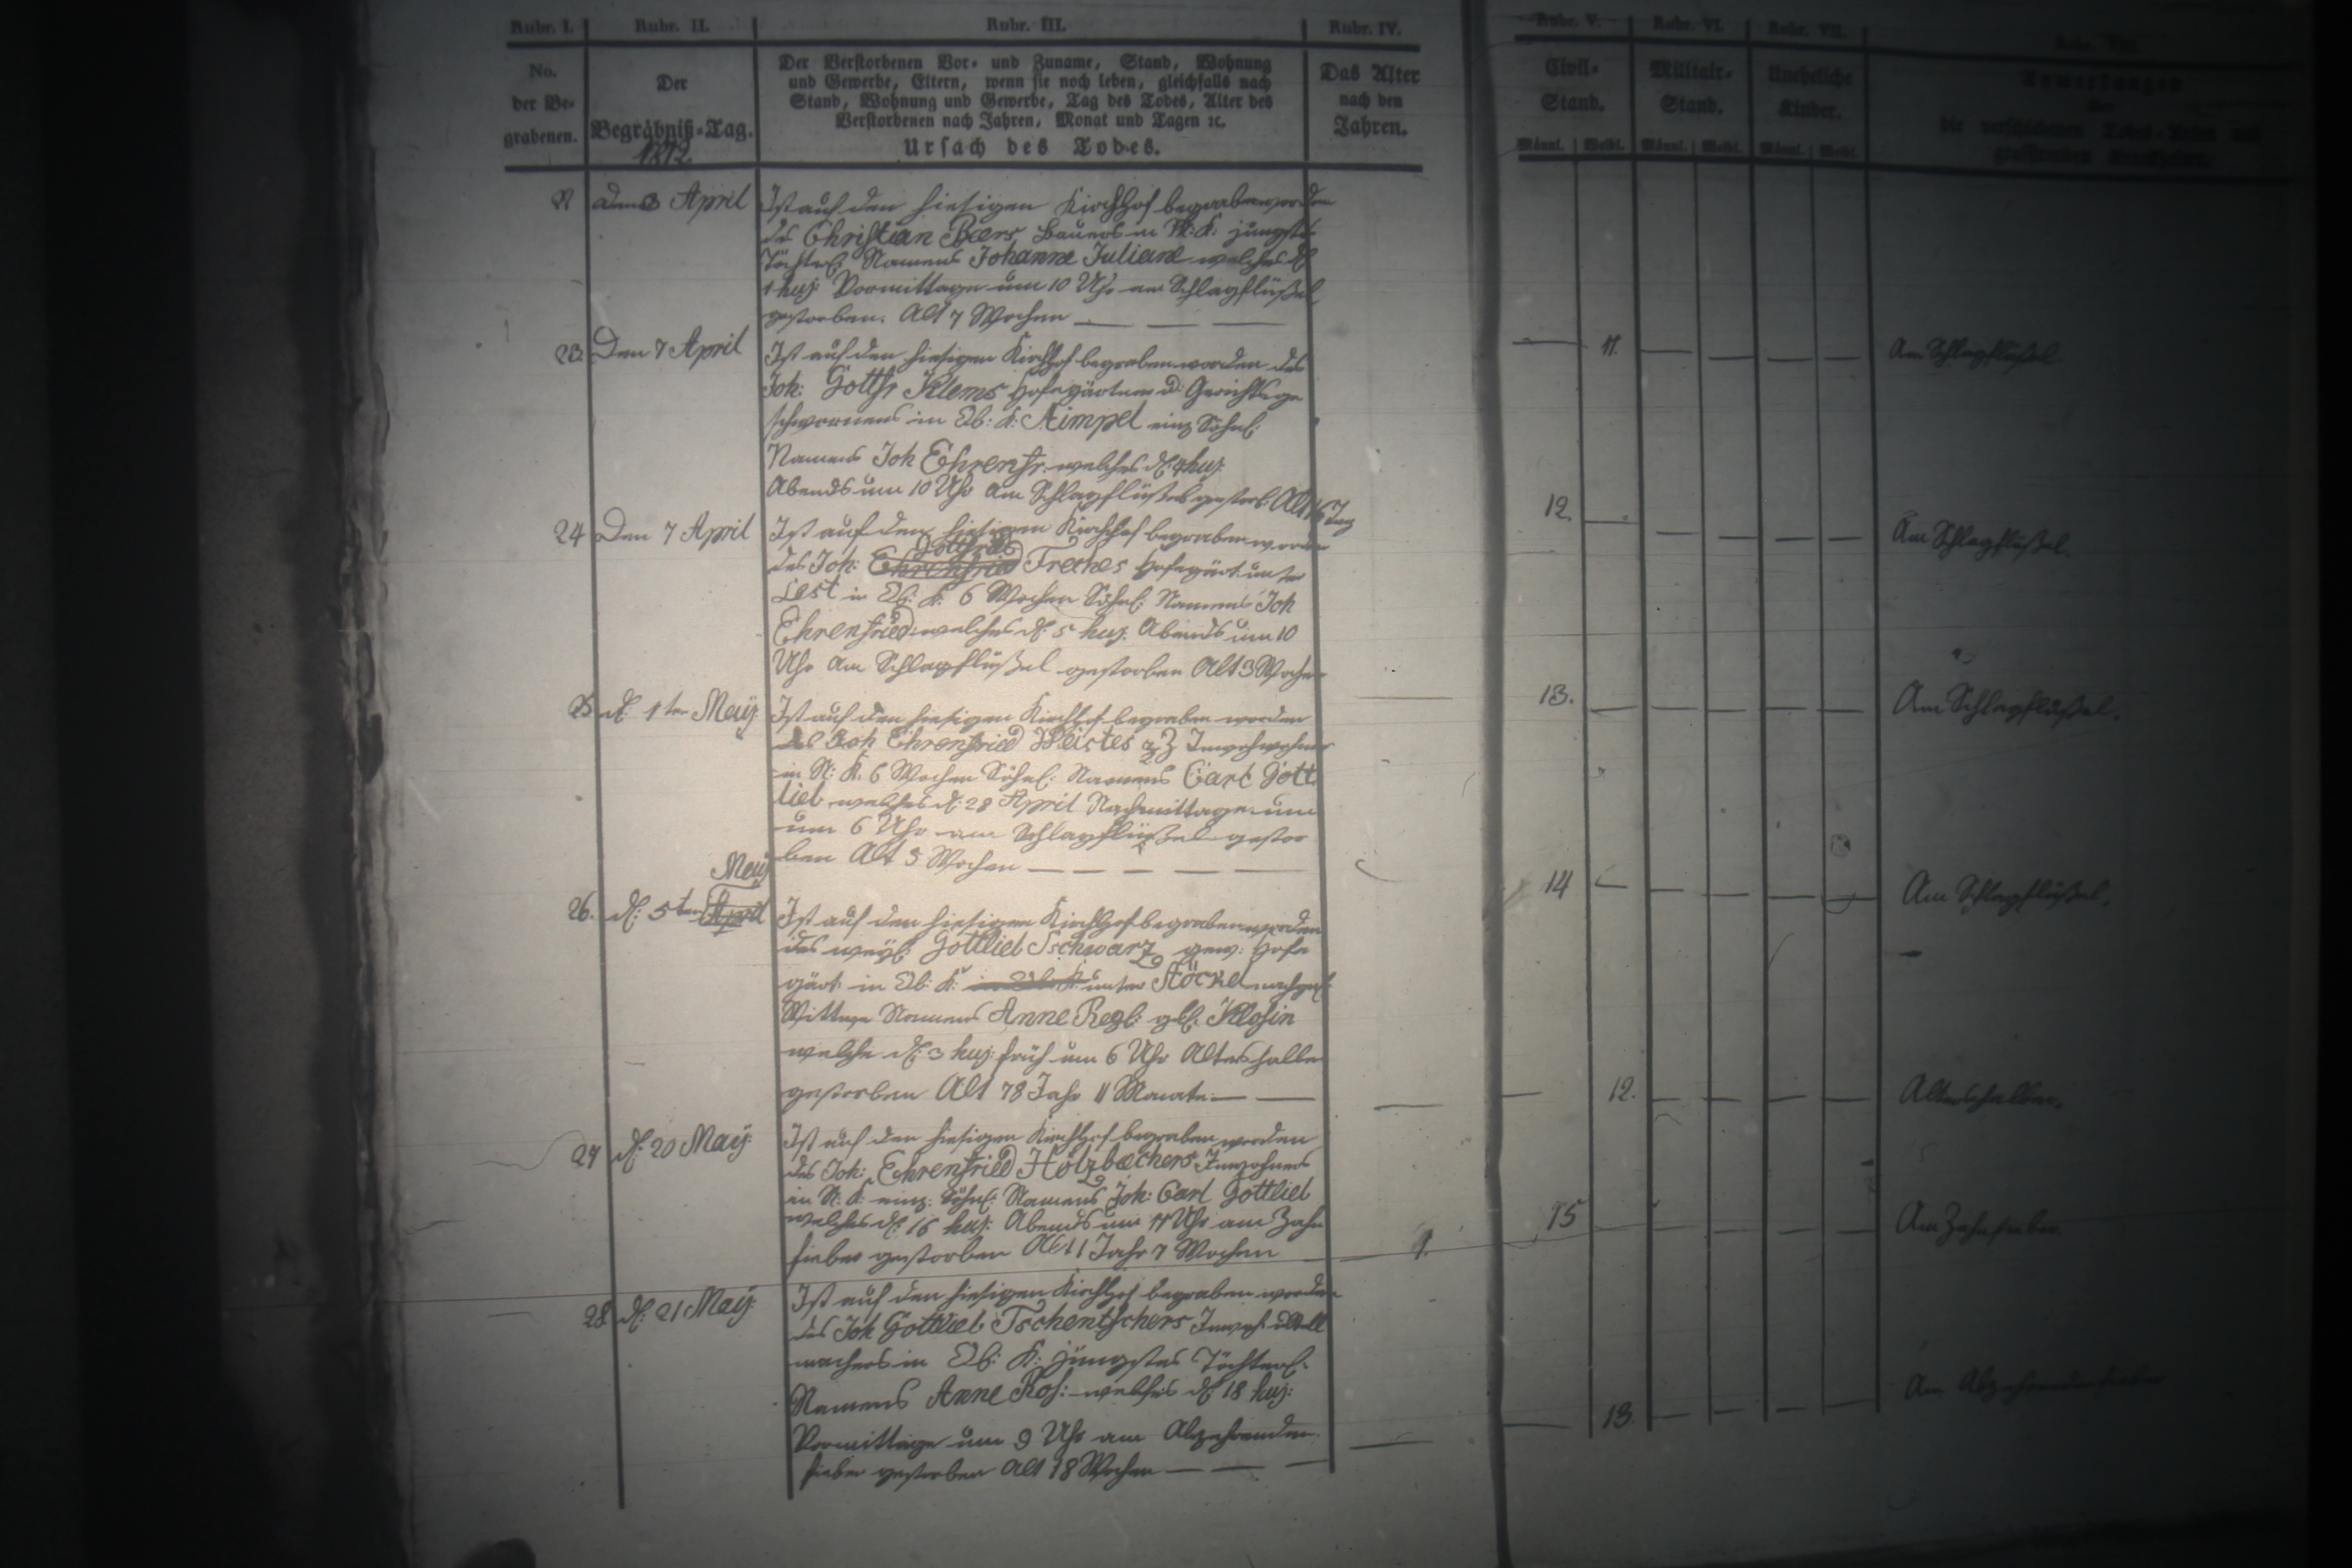 Rubr. I. Rubr. II. Rubr. III. Rubr. IV. Rubr. V. Rubr. VI. Rubr. VII.
No. der Be- grabenen.
Der Begräbniß-Tag.
1812
Der Verstorbenen Vor- und Zuname, Stand, Wohnung
und Gewerbe, Eltern, wenn sie noch leben, gleichfalls nach
Stand, Wohnung und Gewerbe, Tag des Todes, Alter des
Verstorbenen nach Jahren, Monat und Tagen ꝛc.
Ursach des Todes.
Das Alter nach den Jahren.
Civil- Stand.
Militair- Stand.
Uneheliche Kinder.
Anmerkungen
Männl. Weibl. Männl. Weibl. Männl. Weibl.
April Ist auf den hiesigen Kirchhof begraben worden
des Christian Baers Bauers in K: jüngstes
Töchterl. Namens Johanne Juliane welches d.
1 huj: Vormittage um 10 Uhr am Schlagflüßel
gestorben. Alt 7 Wochen
11. Am Schlagflüßel.
23. Den 7 April Ist auf den hiesigen Kirchhof begraben worden des
Joh: Gottfr Klems Hofegärtners u: Gerichtsge
schwornens in Ob: K: einz Söhnl:
Namens Joh Ehrenfr. welches d. 4 huj:
Abends um 10 Uhr am Schlagflüßel gestorb: Alt
12. Am Schlagflüßel.
24 Den 7 April Ist auf dem hiesigen Kirchhof begraben worden
Gottfried
des Joh: Ehrenfried Freches Hofegärt: unter
Lest in Ob: K: 6 Wochen Söhnl: Namens Joh
Ehrenfried welches d. 5 huj. Abends um 10
Uhr am Schlagflüßel gestorben Alt 3 Wochen
13. Am Schlagflüßel.
25 d. 1ten Maÿ Ist auf den hiesigen Kirchhof begraben worden
des Joh Ehrenfried z Z
in N: K: 6 Wochen Söhnl: Namens Carl Gott
lieb welches d. 28 April Nachmittage um
um 6 Uhr am Schlagflüßel gestor
ben Alt 5 Wochen
14 Am Schlagflüßel.
Maÿ
26. d. 5ten April Ist auf den hiesigen Kirchhof begraben worden
des weyl: Gottlieb Tschwarz gew: Hofe
gärt: in Ob: K: in Ob: K: unter Stöckel nachgel:
Wittwe Namens Anne Regl: geb. Klosin
welche d. 3 huj: früh um 6 Uhr Altershalber
gestorben Alt 78 Jahr 11 Monate
12. Altershalber.
27 d. 20 Maÿ: Ist auf den hiesigen Kirchhof begraben worden
des Joh: Ehrenfried Holzbechers Inwohners
in N: K: einz: Söhnl: Namens Joh: Carl Gottlieb
welches d. 16 huj: Abends um 11 Uhr am Zahn
fieber gestorben Alt 1 Jahr 7 Wochen
1. 15 Am Zahnfieber.
28 d. 21 Maÿ: Ist auf den hiesigen Kirchhof begraben worden
des Joh Gottlieb Tschentschers Inwoh: u Stell
machers in Ob: K: jüngstes Töchterl:
Namens Anne Ros: welches d. 18 huj:
Vormittage um 9 Uhr am Abzehrenden
fieber gestorben Alt 18 Wochen
13. Am Abzehrendenfieber